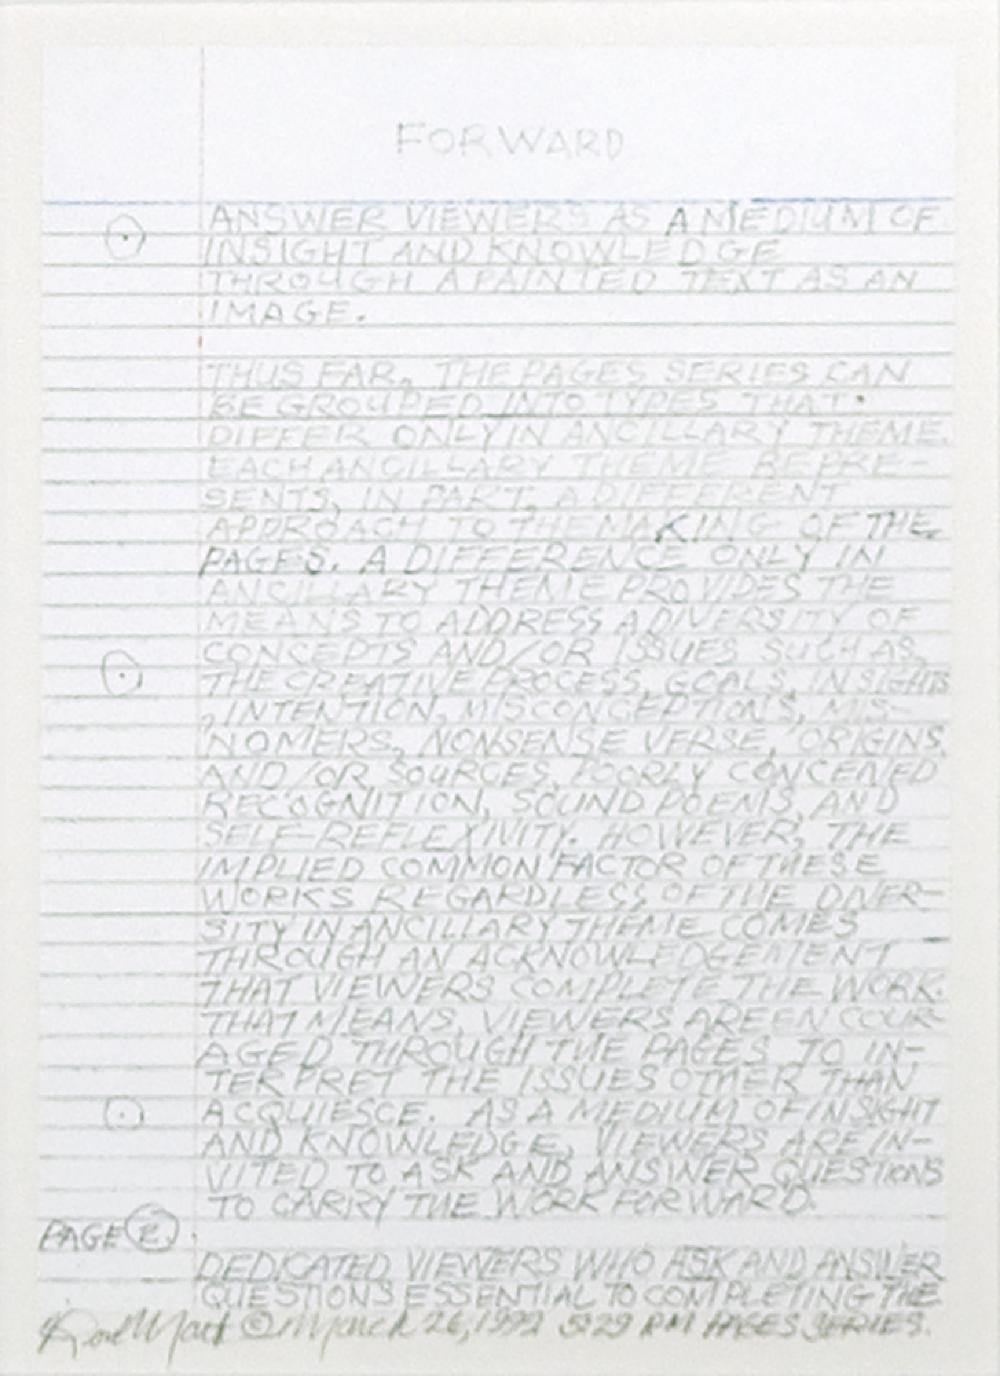 FORWARD
ANSWER VIEWERS AS A MEDIUM OF
INSIGHT AND KNOWLEDGE
THROUGH A PAINTED TEXT AS AN
IMAGE.
THUS FAR, THE PAGES SERIES CAN
BE GROUPED INTO TYPES THAT
DIFFER ONLY IN ANCILLARY THEME.
EACH ANCILLARY THEME REPRE-
SENTS, IN PART, A DIFFERENT
APPROACH TO THE MAKING OF THE
PAGES. A DIFFERENCE ONLY IN
ANCILLARY THEME PROVIDES THE
MEANS TO ADDRESS A DIVERSITY OF
CONCEPTS AND/OR ISSUES SUCH AS,
THE CREATIVE PROCESS, GOALS, INSIGHTS
, INTENTION, MISCONCEPTIONS, MIS-
NOMERS, NONSENSE VERSE, ORIGINS,
AND/OR SOURCES, POORLY CONCEIVED
RECOGNITION, SOUND POEMS, AND
SELF-REFLEXIVITY. HOWEVER, THE
IMPLIED COMMON FACTOR OF THESE
WORKS REGARDLESS OF THE DIVER-
SITY IN ANCILLARY THEME COMES
THROUGH AN ACKNOWLEDGEMENT
THAT VIEWERS COMPLETE THE WORK.
THAT MEANS, VIEWERS ARE ENCOUR-
AGED THROUGH THE PAGES TO IN-
TERPRET THE ISSUES OTHER THAN
ACQUIESCE. AS A MEDIUM OF INSIGHT
AND KNOWLEDGE, VIEWERS ARE IN-
VITED TO ASK AND ANSWER QUESTIONS
TO CARRY THE WORK FORWARD.
PAGE
DEDICATED VIEWERS WHO ASK AND ANSWER
QUESTIONS ESSENTIAL TO COMPLETING THE
© March 26, 1992 5:29 PM PAGES SERIES.